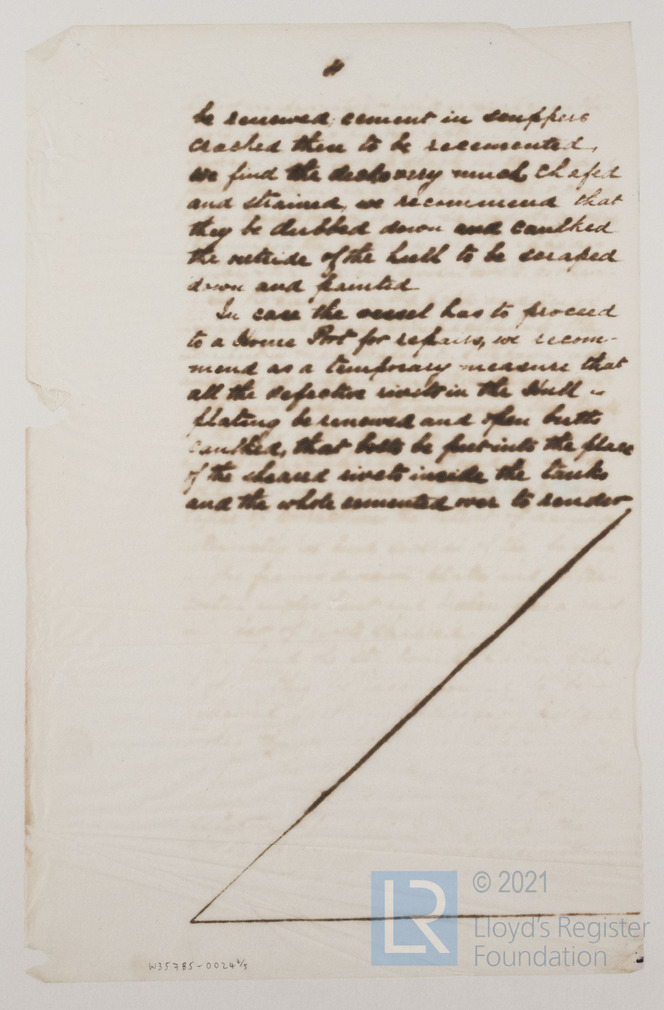 4
be renewed; cement in scuppers
cracked then to be recemented,
we find the decks very much chafed
and strained, we recommend that
they be dubbed down and caulked
the outside of the hull to be scraped
down and painted
In case the vessel has to proceed
to a Home Port for repairs, we recom-
mend as a temporary measure that
all the defective rivets in the Hull
plating be renewed and open butts
caulked, that bolts be put into the place
of the sheared rivets inside the tanks
and the whole cemented over to render
W35785-0024
LR
© 2021
Lloyd's Register
Foundation